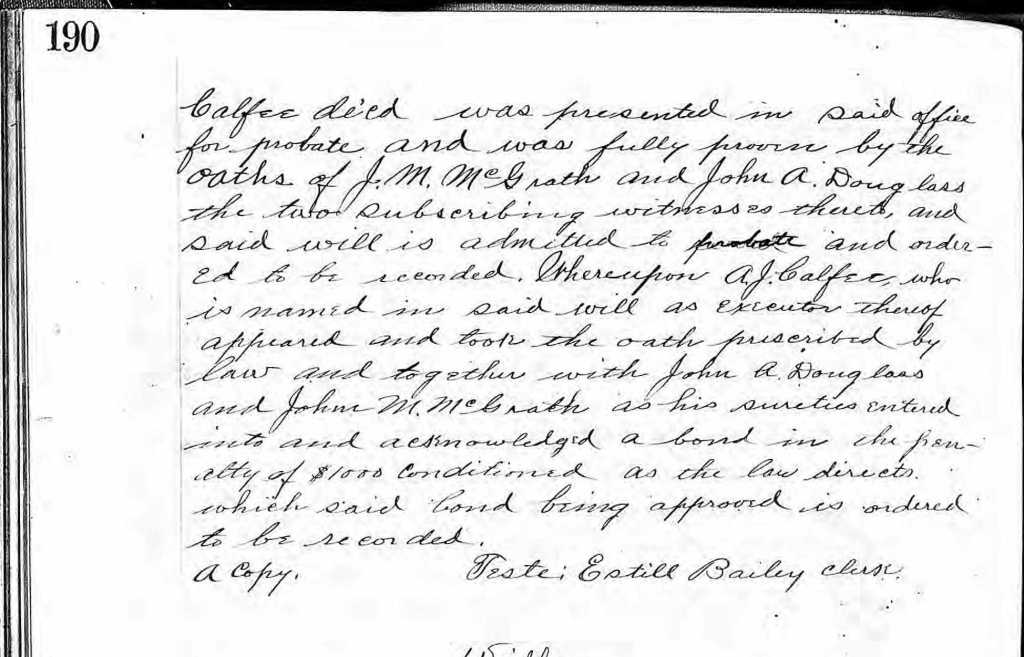 190
Calfee de'cd was presented in said office
for probate and was fully proven by the
oaths of J. M. McGrath and John A. Douglass
the two subscribing witnesses thereto, and
said will is admitted to probate and order-
ed to be recorded. Whereupon A.J. Calfee, who
is named in said will as executor thereof
appeared and took the oath prescribed by
law and together with John A. Douglass
and John M. McGrath as his sureties entered
into and acknowledged a bond in the pen-
alty of $1000 conditioned as the law directs.
which said bond being approved is ordered
to be recorded.
A Copy. Teste: Estill Bailey clerk.